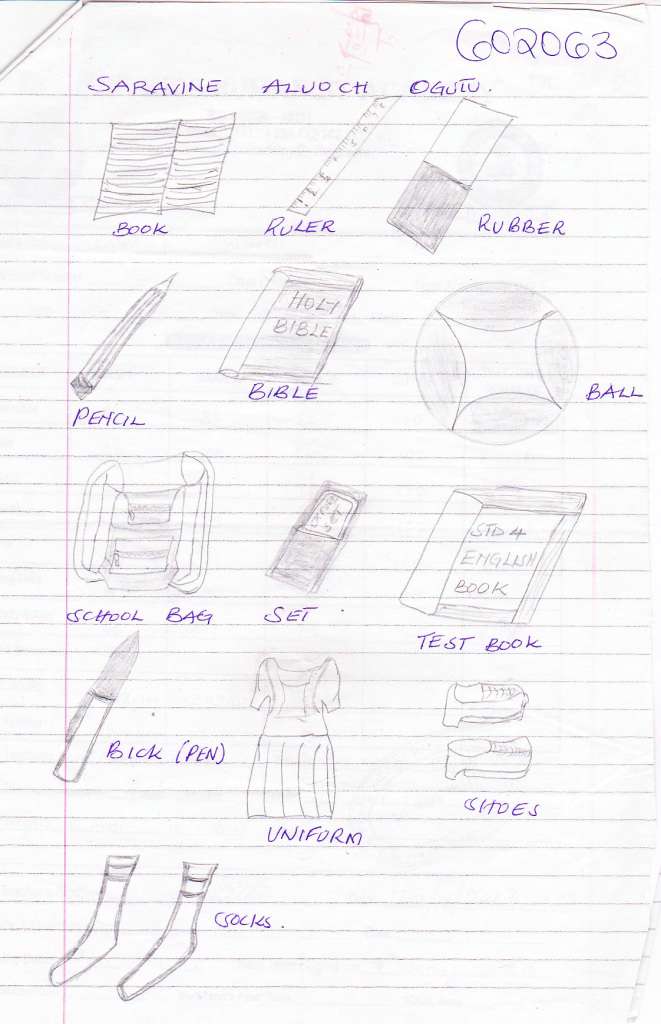 602063
SARAVINE ALUOCH OGUTU.
BOOK
RULER
RUBBER
HOLY
BIBLE
PENCIL
BIBLE
BALL
STD 4
ENGLISH
BOOK
SCHOOL BAG
SET
TEST BOOK
BICK (PEN)
UNIFORM
SHOES
SOCKS.